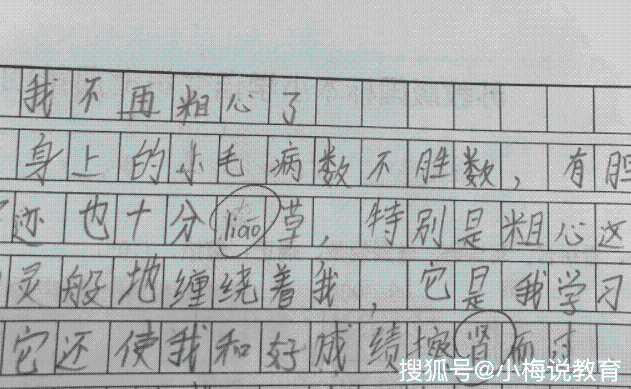 我不再粗心了
身上的小毛病数不胜数，有胆
迹也十分liáo草，特别是粗心这
灵般地缠绕着我，它是我学习
它还使我和好成绩擦肾而过
搜狐号@小梅说教育